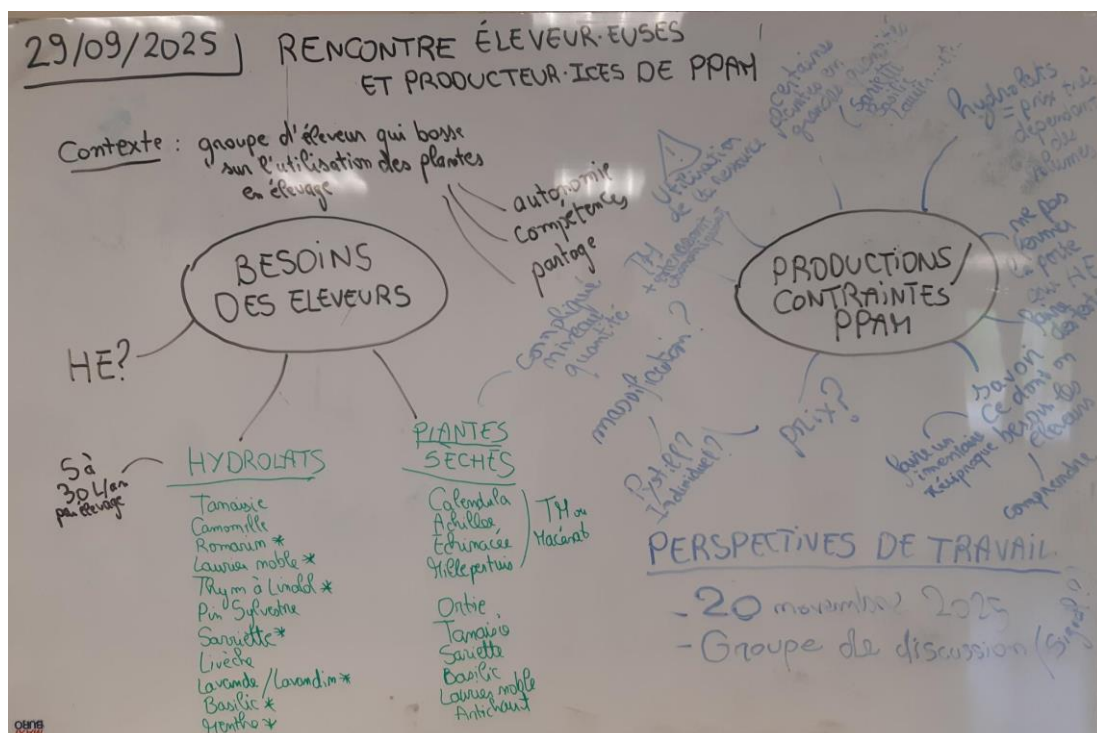 29/09/2025
RENCONTRE ÉLEVEUR·EUSES
ET PRODUCTEUR·ICES DE PPAM
Contexte : groupe d'éleveur qui bosse
sur l'utilisation des plantes
en élevage
autonomie
compétences
partage
BESOINS
DES ELEVEURS
HE?
5 à
30 L/an
par élevage
HYDROLATS
Tanaisie
Camomille
Romarin *
Laurier noble *
Thym à Linalol *
Pin Sylvestre
Sarriette *
Livèche
Lavande / Lavandin *
Basilic *
Menthe *
compliqué
niveau
quantité
PLANTES
SÈCHES
Calendula
Achillée
Echinacée
Millepertuis
TM ou
Macérat
Ortie
Tanaisie
Sariette
Basilic
Laurier noble
Artichaut
PRODUCTIONS/
CONTRAINTES
PPAM
Utilisation
de la ressource
TM
+
certaines
plantes en
grande quantité
(sariette
basilic
hydrolats
= prix très
dépendant
des
volumes
ne pas
fermer
la porte
aux HE
savoir
ce dont on
besoin les
éleveurs
faire un
inventaire
réciproque
comprendre
prix?
massification?
Individuel?
PERSPECTIVES DE TRAVAIL
- 20 novembre 2025
- Groupe de discussion (Signal?)